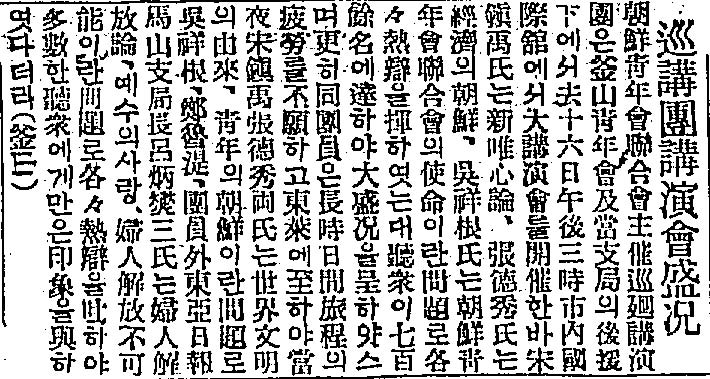 巡講團講演會盛况
朝鮮靑年會聯合會主催巡廻講演
團은釜山靑年會及當支局의後援
下에셔去十六日午後三時市內國
際舘에셔大講演會를開催한바宋
鎭禹氏는新唯心論、張德秀氏는
經濟의朝鮮、吳祥根氏는朝鮮靑
年會聯合會의使命이란問題로各
々熱辯을揮하엿는대聽衆이七百
餘名에達하야大盛况을呈하얏스
며更히同團員은長時日間旅程의
疲勞를不願하고東萊에至하야當
夜宋鎭禹張德秀両氏는世界文明
의由來、靑年의朝鮮이란問題로
吳祥根、鄭魯湜、團員外東亞日報
馬山支局長呂炳燮三氏는婦人解
放論、예수의사랑、婦人解放不可
能이란問題로各々熱辯을吐하야
多數한聽衆에게만은印象을與하
엿다더라(釜山)